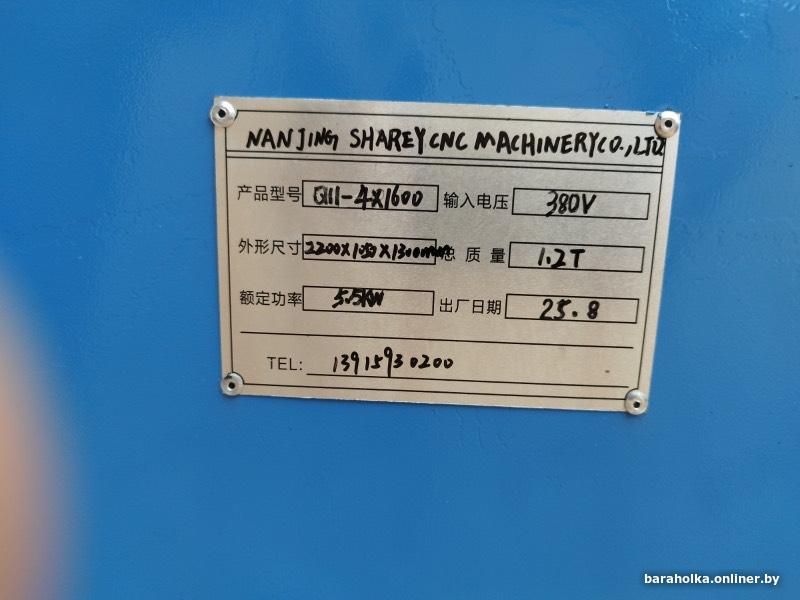 NANJING SHAREY CNC MACHINERY CO.,LTD
产品型号 Q11-4X1600 输入电压 380V
外形尺寸 2200X1050X1300mm 总质量 1.2T
额定功率 5.5KW 出厂日期 25.8
TEL: 13915930200
baraholka.onliner.by